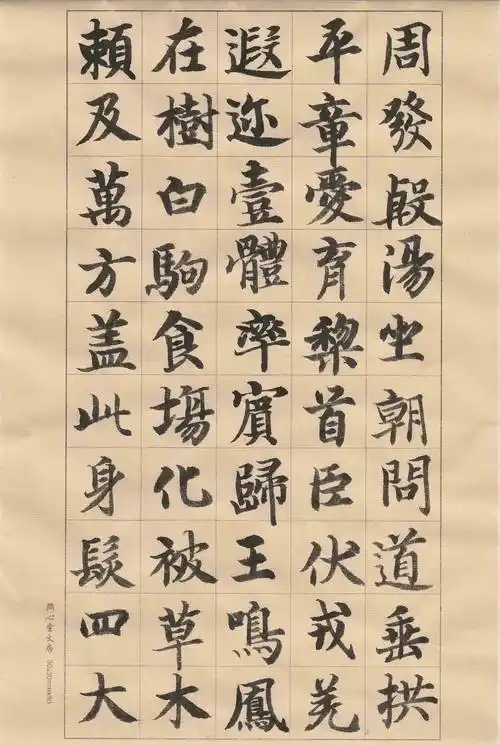 周發殷湯坐朝問道垂拱
平章愛育黎首臣伏戎羌
遐迩壹體率賓歸王鳴鳳
在樹白駒食場化被草木
賴及萬方盖此身髮四大